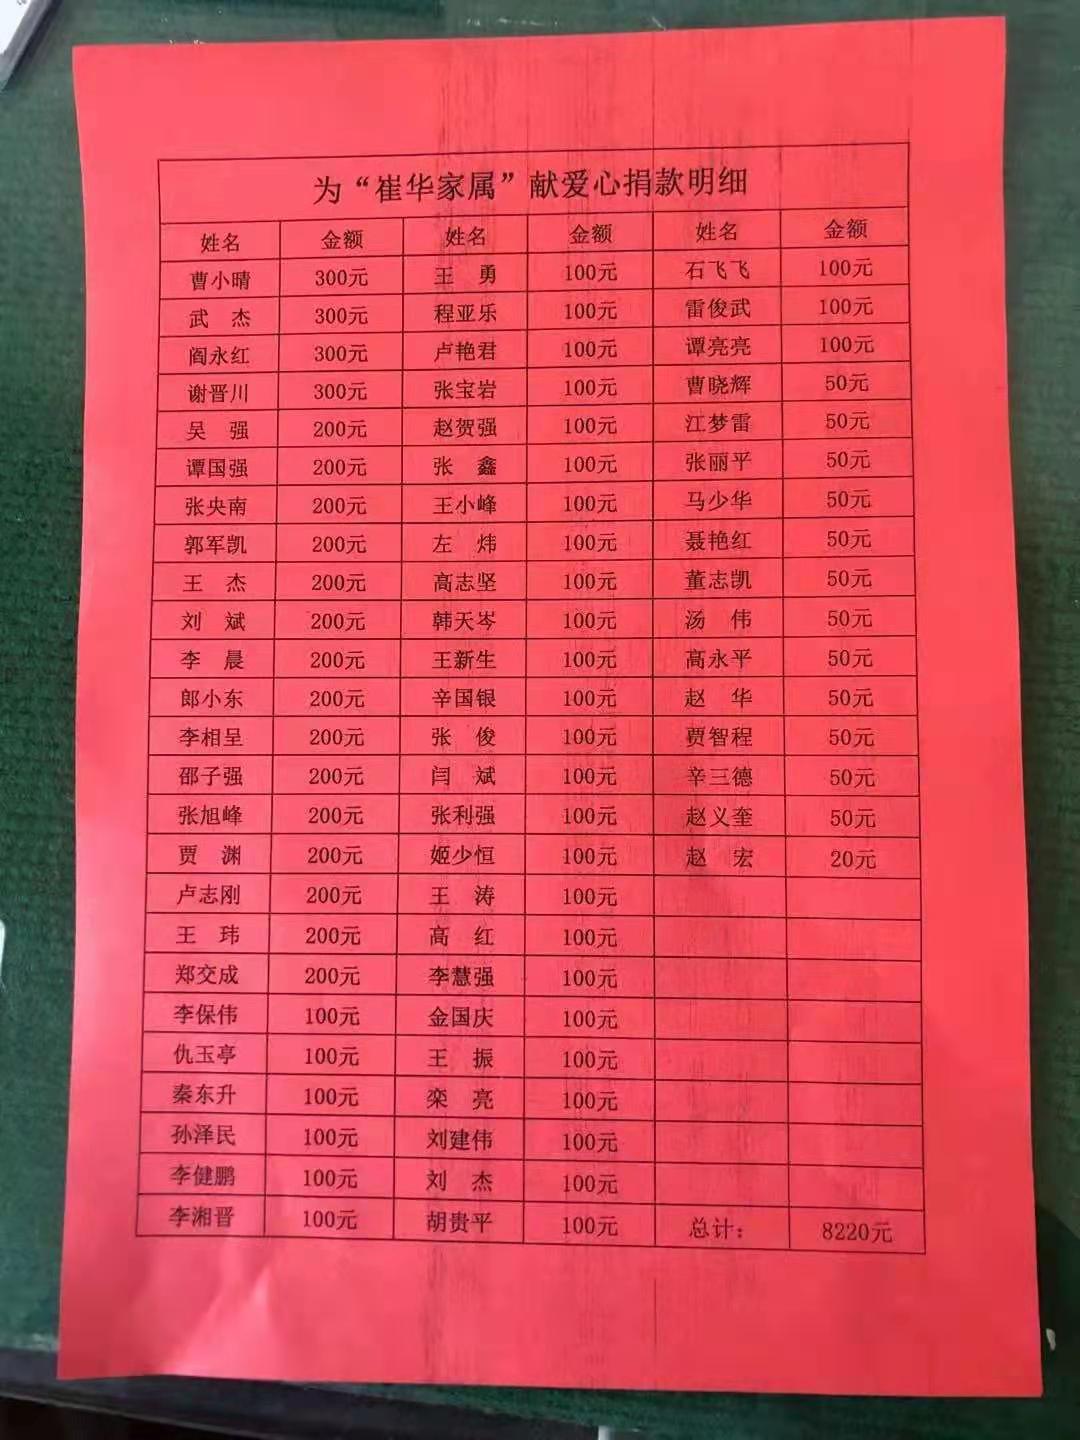 为“崔华家属”献爱心捐款明细
姓名 金额 姓名 金额 姓名 金额
曹小晴 300元 王 勇 100元 石飞飞 100元
武 杰 300元 程亚乐 100元 雷俊武 100元
阎永红 300元 卢艳君 100元 谭亮亮 100元
谢晋川 300元 张宝岩 100元 曹晓辉 50元
吴 强 200元 赵贺强 100元 江梦雷 50元
谭国强 200元 张 鑫 100元 张丽平 50元
张央南 200元 王小峰 100元 马少华 50元
郭军凯 200元 左 炜 100元 聂艳红 50元
王 杰 200元 高志坚 100元 董志凯 50元
刘 斌 200元 韩天岑 100元 汤 伟 50元
李 晨 200元 王新生 100元 高永平 50元
郎小东 200元 辛国银 100元 赵 华 50元
李相呈 200元 张 俊 100元 贾智程 50元
邵子强 200元 闫 斌 100元 辛三德 50元
张旭峰 200元 张利强 100元 赵义奎 50元
贾 渊 200元 姬少恒 100元 赵 宏 20元
卢志刚 200元 王 涛 100元
王 玮 200元 高 红 100元
郑交成 200元 李慧强 100元
李保伟 100元 金国庆 100元
仇玉亭 100元 王 振 100元
秦东升 100元 栾 亮 100元
孙泽民 100元 刘建伟 100元
李健鹏 100元 刘 杰 100元
李湘晋 100元 胡贵平 100元 总计： 8220元